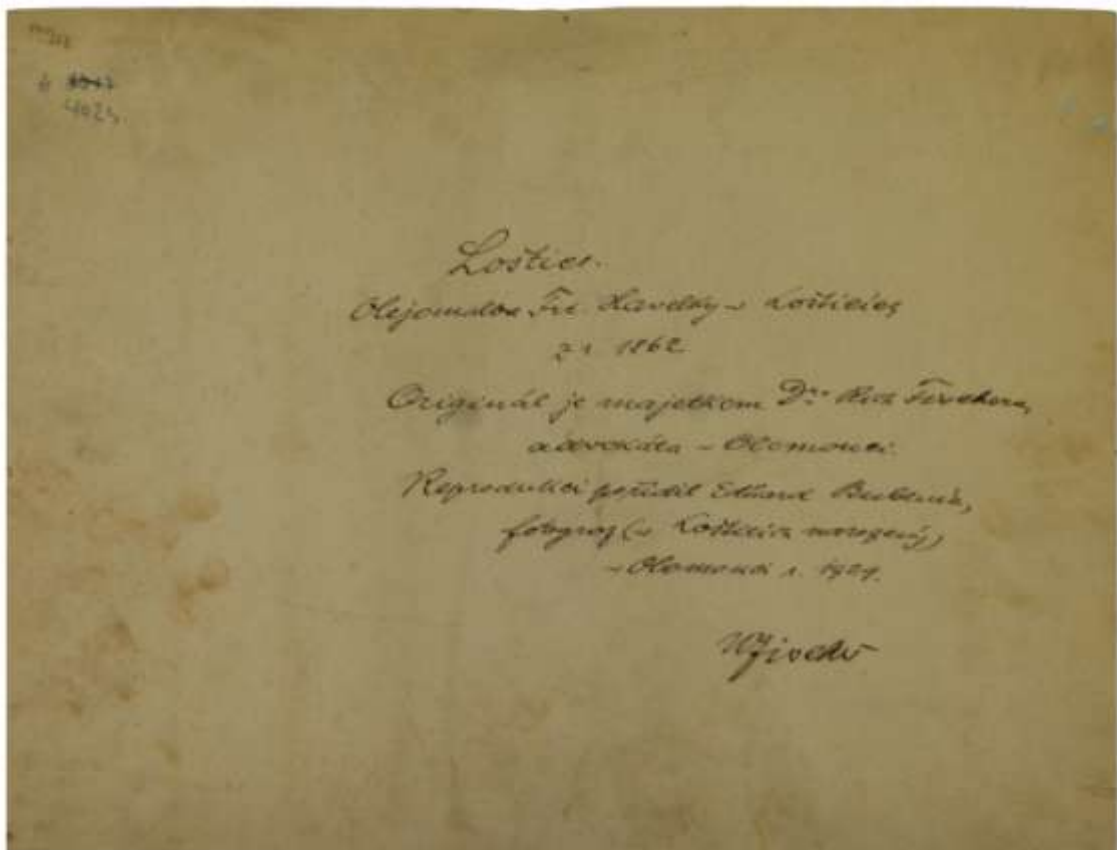 4024
Loštice.
Olejomalba Fr. Havelky v Lošticích
z r. 1862
Originál je majetkem Dra Rich. Fischera,
advokáta v Olomouci.
Reprodukci pořídil Eduard Bubeník,
fotograf (v Lošticích narozený)
v Olomouci r. 1929.
Fischer